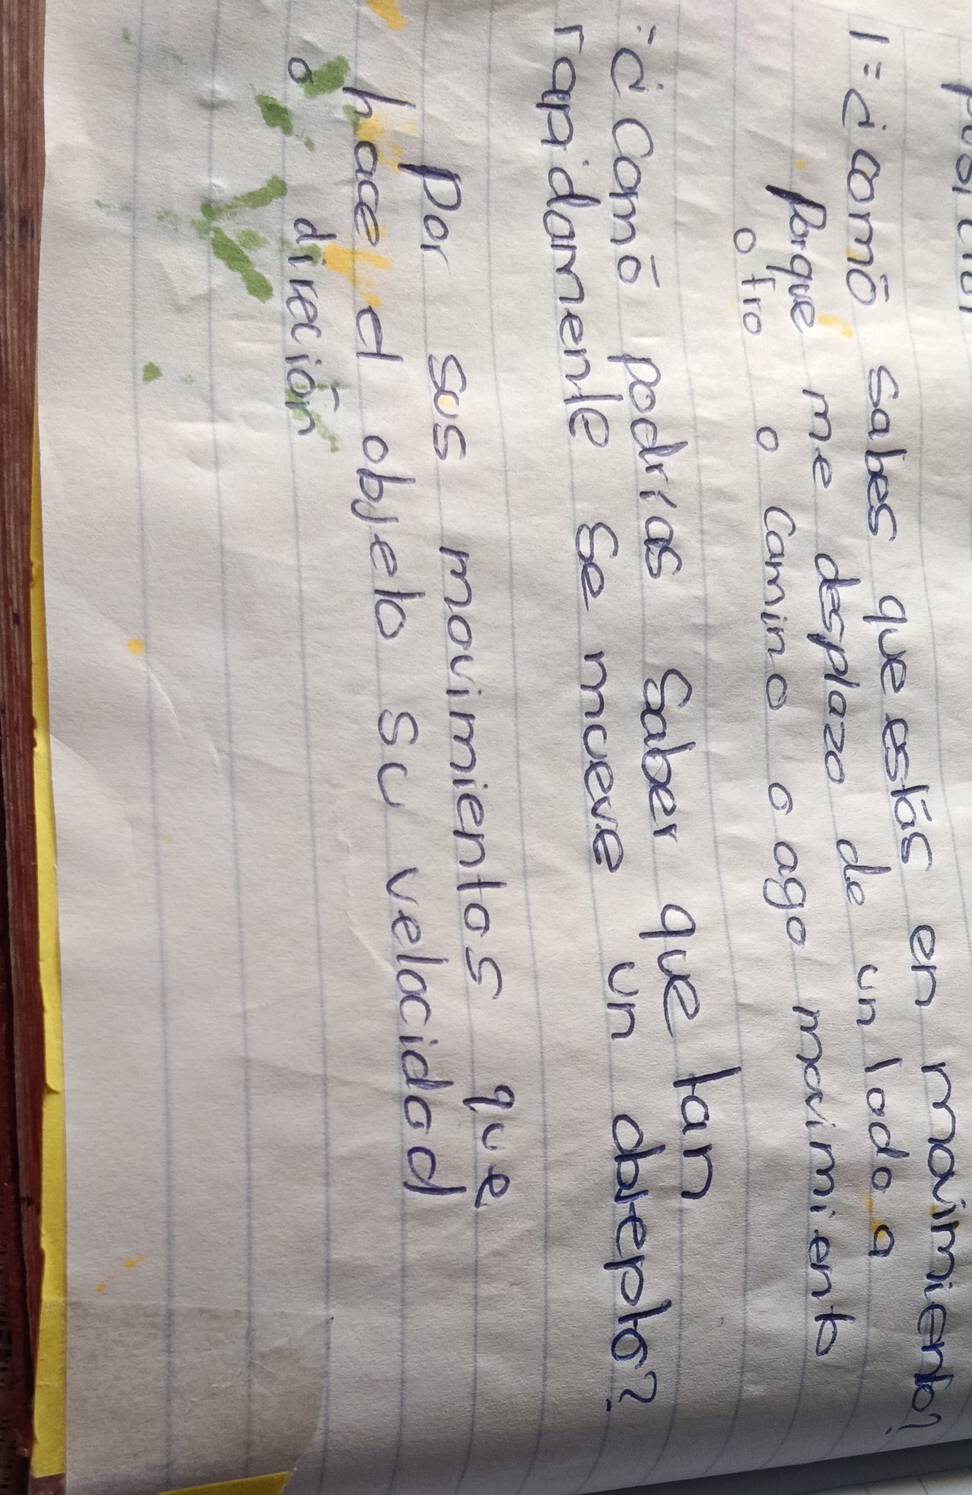 posición
1=¿comō sabes que estās en movimiento?
Porque me desplazo de un lado a
otro o camino o ago movimiento
:¿Comō podrías Saber que tan
rapidamente se mueve un
Por sus movimientos que
hace el objeto su velocidad
o direciōn